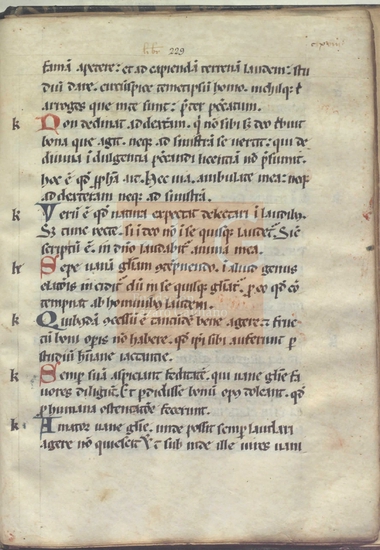 229
famā apetere: et ad capiendā terrenā laudem: stu
diū dare. circūspice temetipsū homo. nichilq; t
arroges que in te sunt: pter peccatum.
k Non declinat ad dexterā. q nō sibi sz deo tbuit
bona que agit. neq; ad sinistrā se uertit: qui de
diuina īdulgentia peccandi licentiā nō psumit.
hoc ē qd ppha ait. Hec uia. ambulate in ea: neq;
ad dexteram neq; ad sinistrā.
k Verū ē qd natura expetat delectari ī laudib;
Sz tunc recte. si ī deo nō ī se quisq; laudet. Sic
scriptū ē. in dno laudabit anima mea.
k Sepe uanā gliam contempnendo. ī aliud genus
elatiōis incidit. dū in se quisq; gliat. p eo qd cō
tempnat ab hominibz laudem.
k Quibusdā necessū ē bene agere: et fruc
tū boni opis nō habere. qd ipsi sibi auferunt p
studiū humane iactantie.
k Semp suā aspiciant feditatē. qui uane glie fa
uores diligunt. Et pdidisse bonū opus doleant. qd
p humana ostentatōe fecerunt.
k Amator uane glie. unde possit semp laudari
agere nō quiescit et sub inde ille uires uani